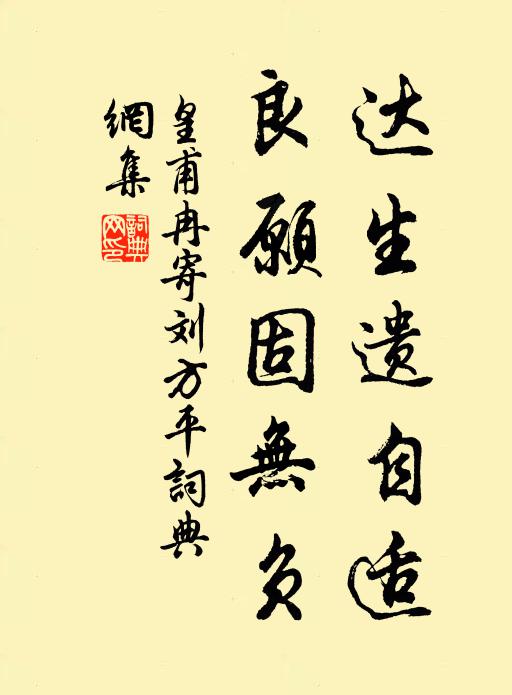 达生遗自适
良願固無负
皇甫冉寄刘方平詞典
網集
詞典
网印